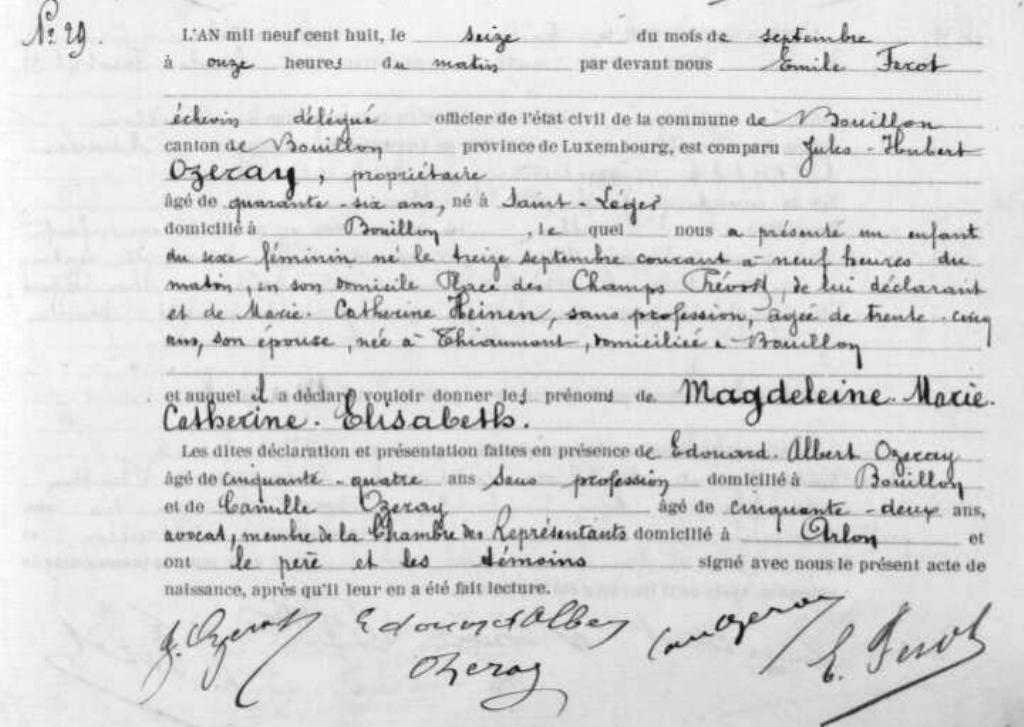 N° 29.
L'AN mil neuf cent huit, le seize du mois de septembre
à onze heures du matin par devant nous Emile Ferot
échevin délégué officier de l'état civil de la commune de Bouillon
canton de Bouillon province de Luxembourg, est comparu Jules-Hubert
Ozeray, propriétaire
âgé de quarante-six ans, né à Saint-Léger
domicilié à Bouillon, le quel nous a présenté un enfant
du sexe féminin né le treize septembre courant à neuf heures du
matin, en son domicile Place des Champs Prévost, de lui déclarant
et de Marie-Catherine Heinen, sans profession, agée de trente-cinq
ans, son épouse, née à Thiaumont, domiciliée à Bouillon
et auquel il a déclaré vouloir donner les prénoms de Magdeleine-Marie-
Catherine-Elisabeth.
Les dites déclaration et présentation faites en présence de Edouard-Albert Ozeray
âgé de cinquante-quatre ans sans profession domicilié à Bouillon
et de Camille Ozeray âgé de cinquante-deux ans,
avocat, membre de la Chambre des Représentants domicilié à Arlon et
ont le père et les témoins signé avec nous le présent acte de
naissance, après qu'il leur en a été fait lecture.
J. Ozeray Edouard Albert Cam Ozeray E. Ferot
Ozeray